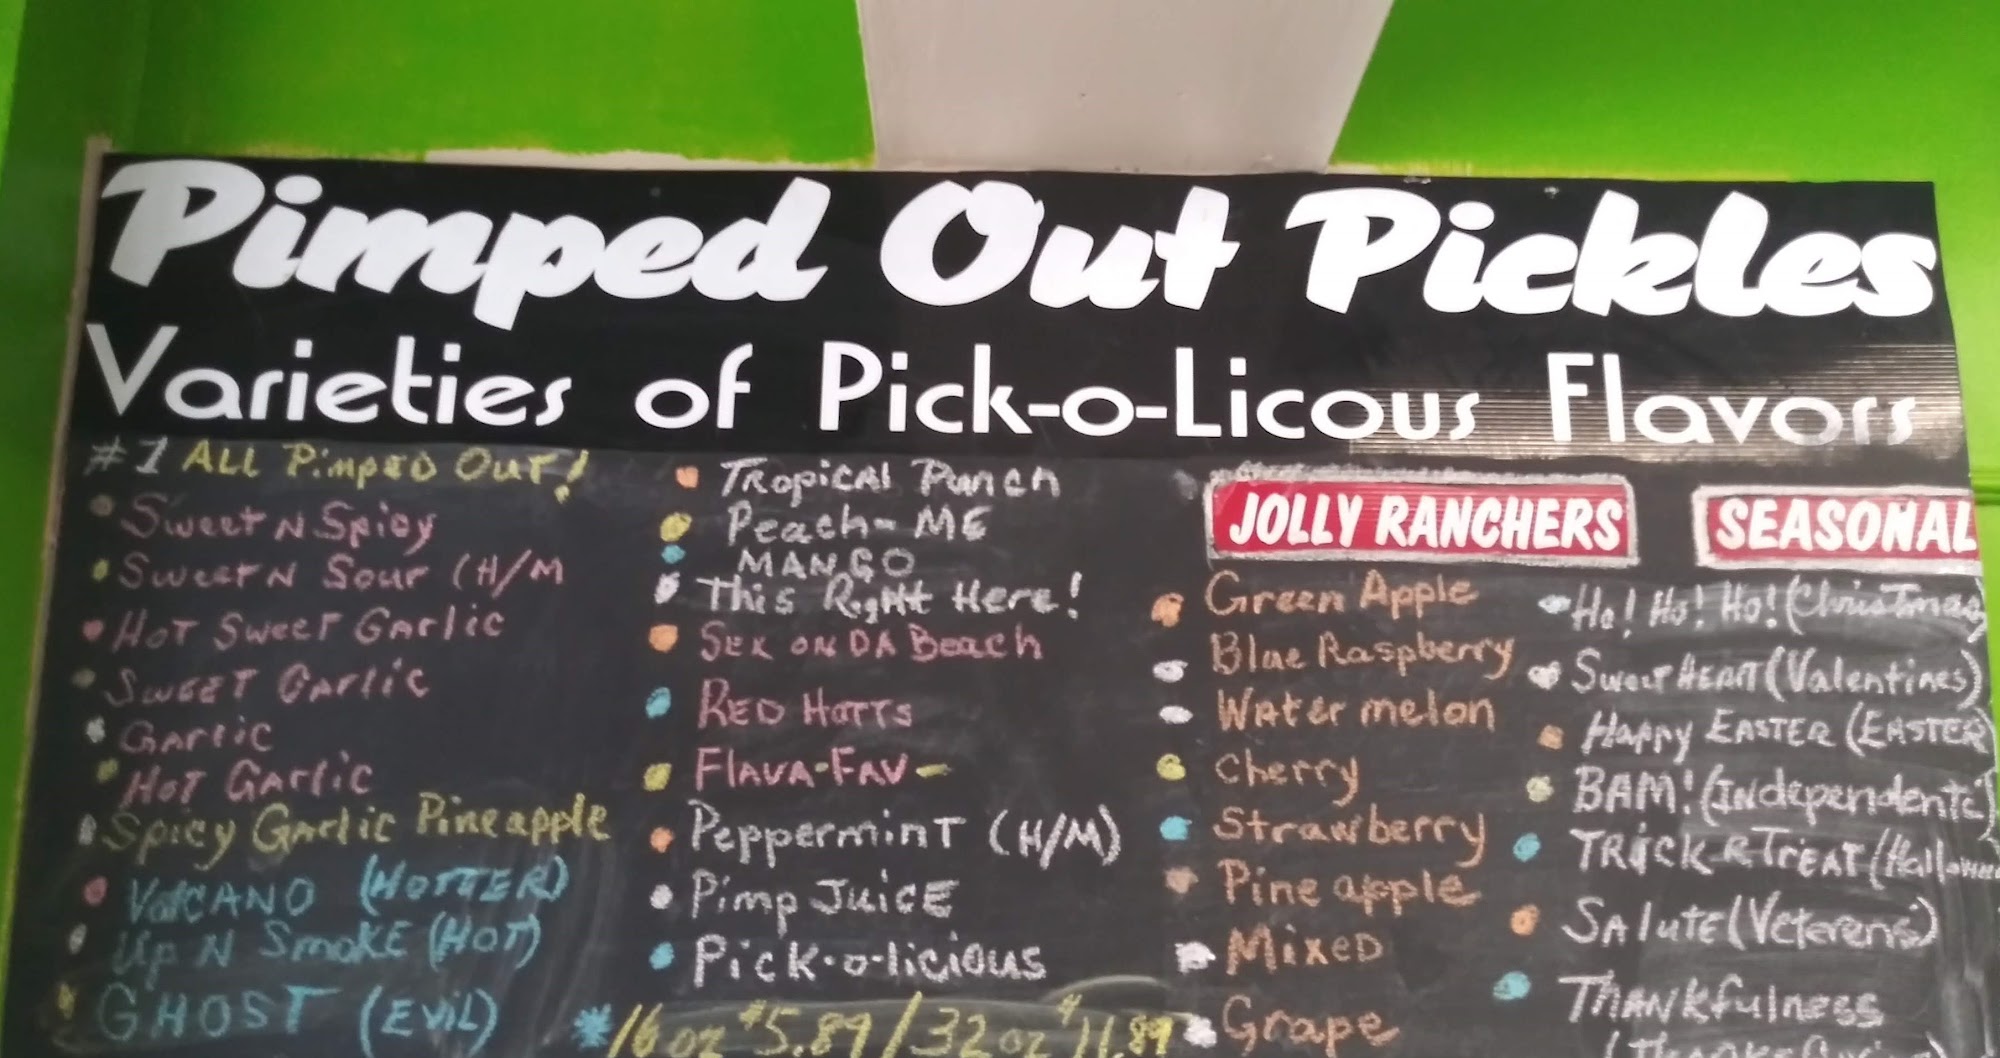 Pimped Out Pickles
Varieties of Pick-o-Licous Flavors
#1 ALL PimpED OUT!
Sweet N Spicy
Sweet N Sour (H/M
HOT Sweet Garlic
SWEET Garlic
GArlic
HOT GArlic
Spicy Garlic Pineapple
VolCANO (HOTTER)
Up N SmokE (HOT)
GHOST (EViL)
TRopicAl Punch
Peach-ME
MANGO
This Right Here!
SEX ON DA Beach
RED HOTTS
FLAVA-FAV-
PeppermiNT (H/M)
Pimp JuicE
Pick-o-licious
*16 oz $5.89/32 oz $11.89
JOLLY RANCHERS
Green Apple
Blue Raspberry
WAter melon
Cherry
Strawberry
Pine apple
MixED
Grape
SEASONAL
Ho! Ho! Ho! (Christmas
Sweet HEART (Valentines)
HAppy EASTER (EASTER)
BAM! (INdependence)
TRICK R TrEAT (Hallowee
SAlute (Veterens)
THANkfulness